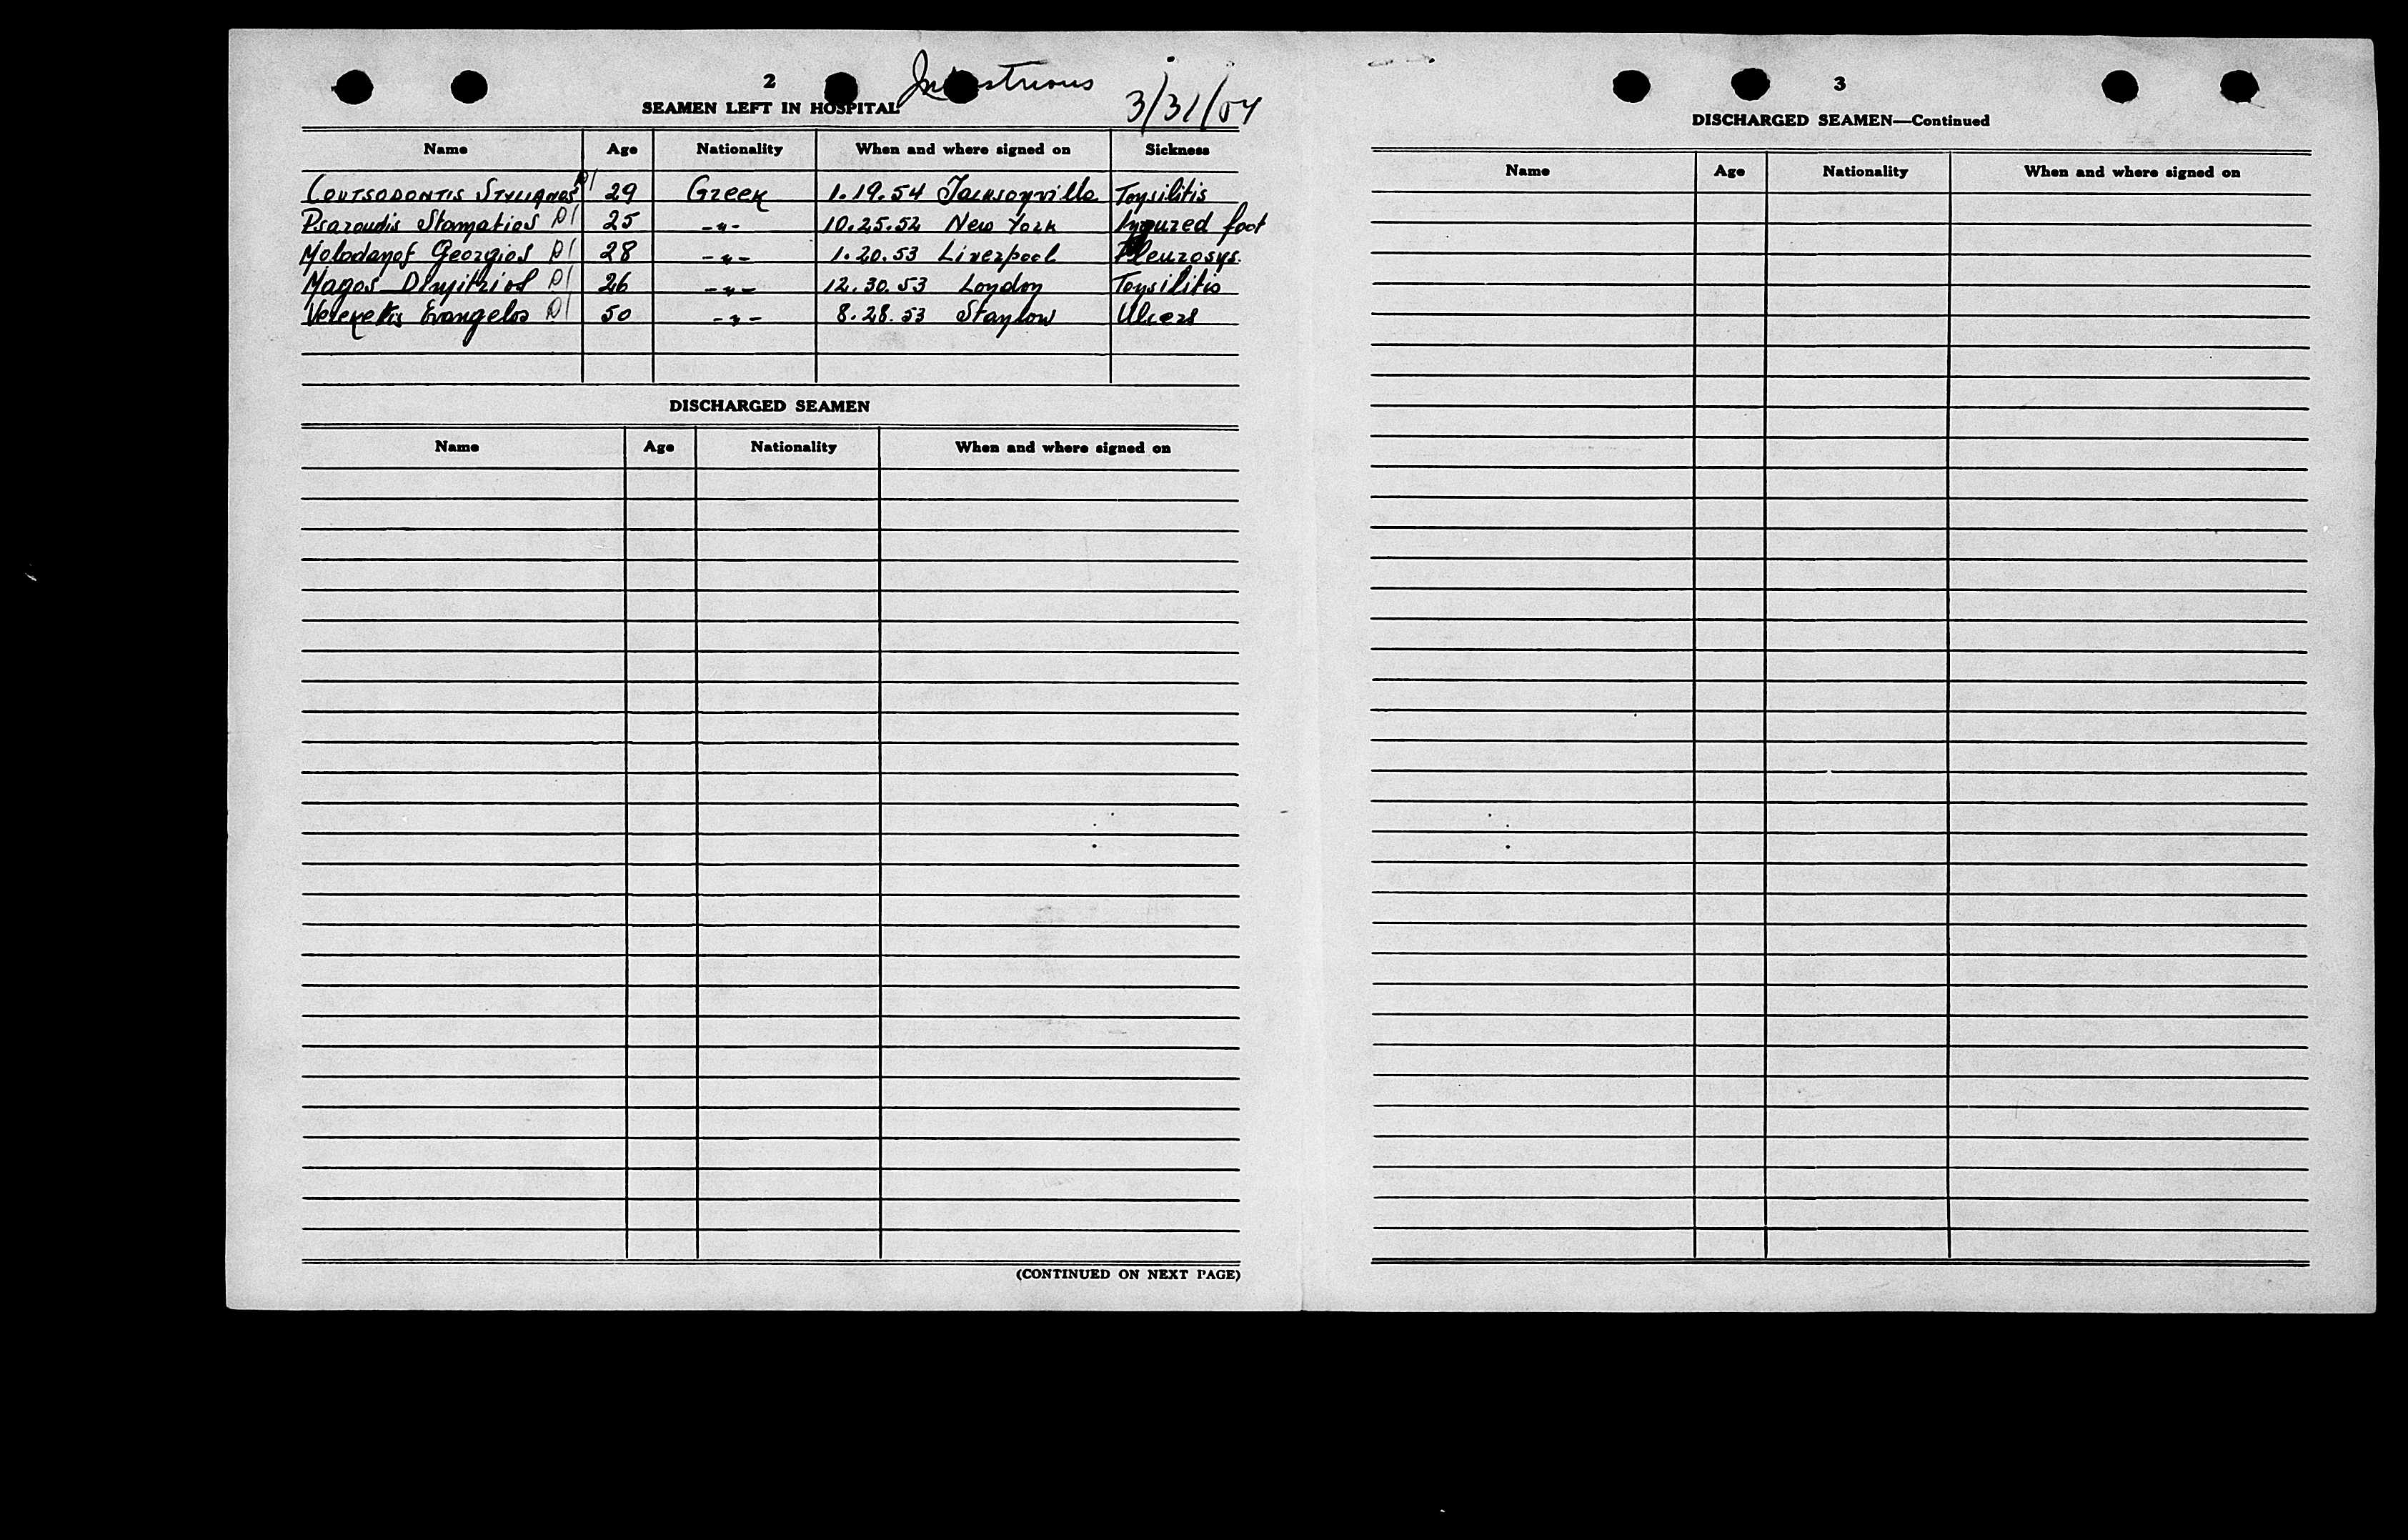 2
Industrious
SEAMEN LEFT IN HOSPITAL
3/31/54
Name Age Nationality When and where signed on Sickness
COUTSODONTIS STYLIANOS 29 Greek 1.19.54 Jacksonville Tonsilitis
Psaroudis Stamatios 25 -"- 10.25.52 New York Injured foot
Molodanof Georgios 28 -"- 1.20.53 Liverpool Pleurosys.
Magos Dimitrios 26 -"- 12.30.53 London Tonsilitis
Evangelos 50 -"- 8.28.53 Stanlow Ulcers
DISCHARGED SEAMEN
Name Age Nationality When and where signed on
(CONTINUED ON NEXT PAGE)
3
DISCHARGED SEAMEN—Continued
Name Age Nationality When and where signed on